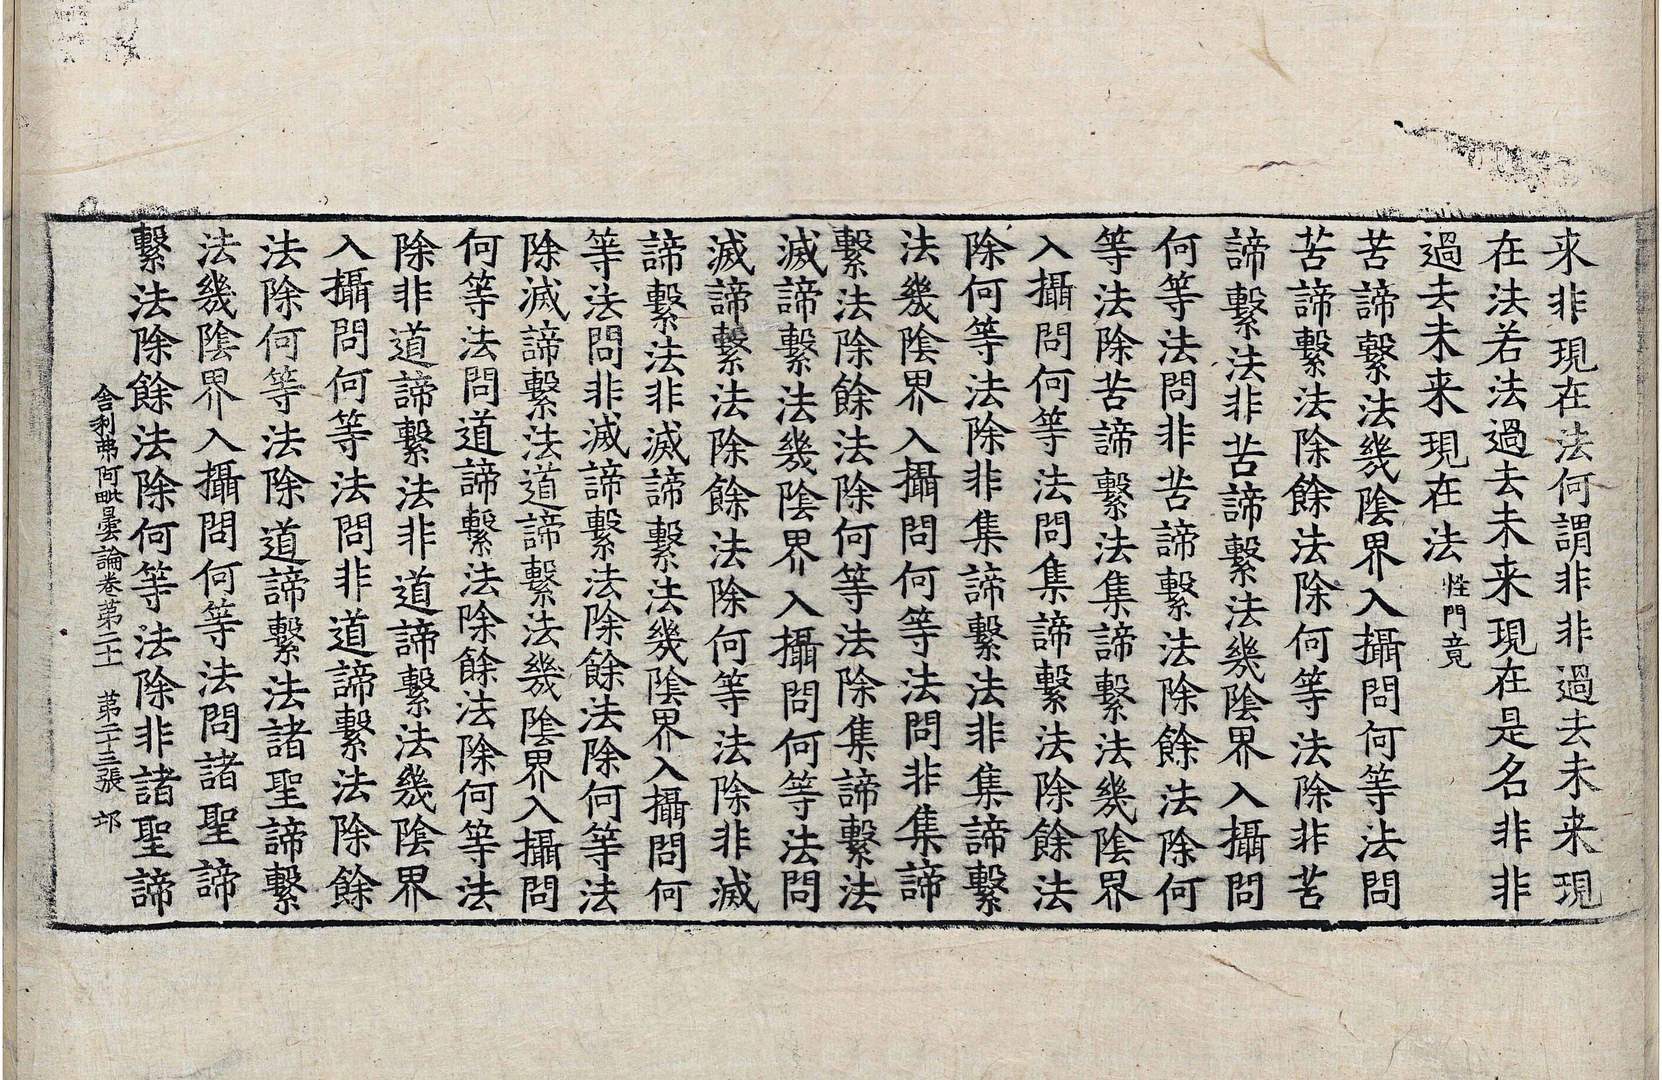 来非現在法何謂非非過去未来現
在法若法過去未来現在是名非非
過去未来現在法性門竟
苦諦繫法幾陰界入攝問何等法問
苦諦繫法除餘法除何等法除非苦
諦繫法非苦諦繫法幾陰界入攝問
何等法問非苦諦繫法除餘法除何
等法除苦諦繫法集諦繫法幾陰界
入攝問何等法問集諦繫法除餘法
除何等法除非集諦繫法非集諦繫
法幾陰界入攝問何等法問非集諦
繫法除餘法除何等法除集諦繫法
滅諦繫法幾陰界入攝問何等法問
滅諦繫法除餘法除何等法除非滅
諦繫法非滅諦繫法幾陰界入攝問何
等法問非滅諦繫法除餘法除何等法
除滅諦繫法道諦繫法幾陰界入攝問
何等法問道諦繫法除餘法除何等法
除非道諦繫法非道諦繫法幾陰界
入攝問何等法問非道諦繫法除餘
法除何等法除道諦繫法諸聖諦繫
法幾陰界入攝問何等法問諸聖諦
繫法除餘法除何等法除非諸聖諦
舍利弗阿毗曇論卷第二十一 第二十三張 邙